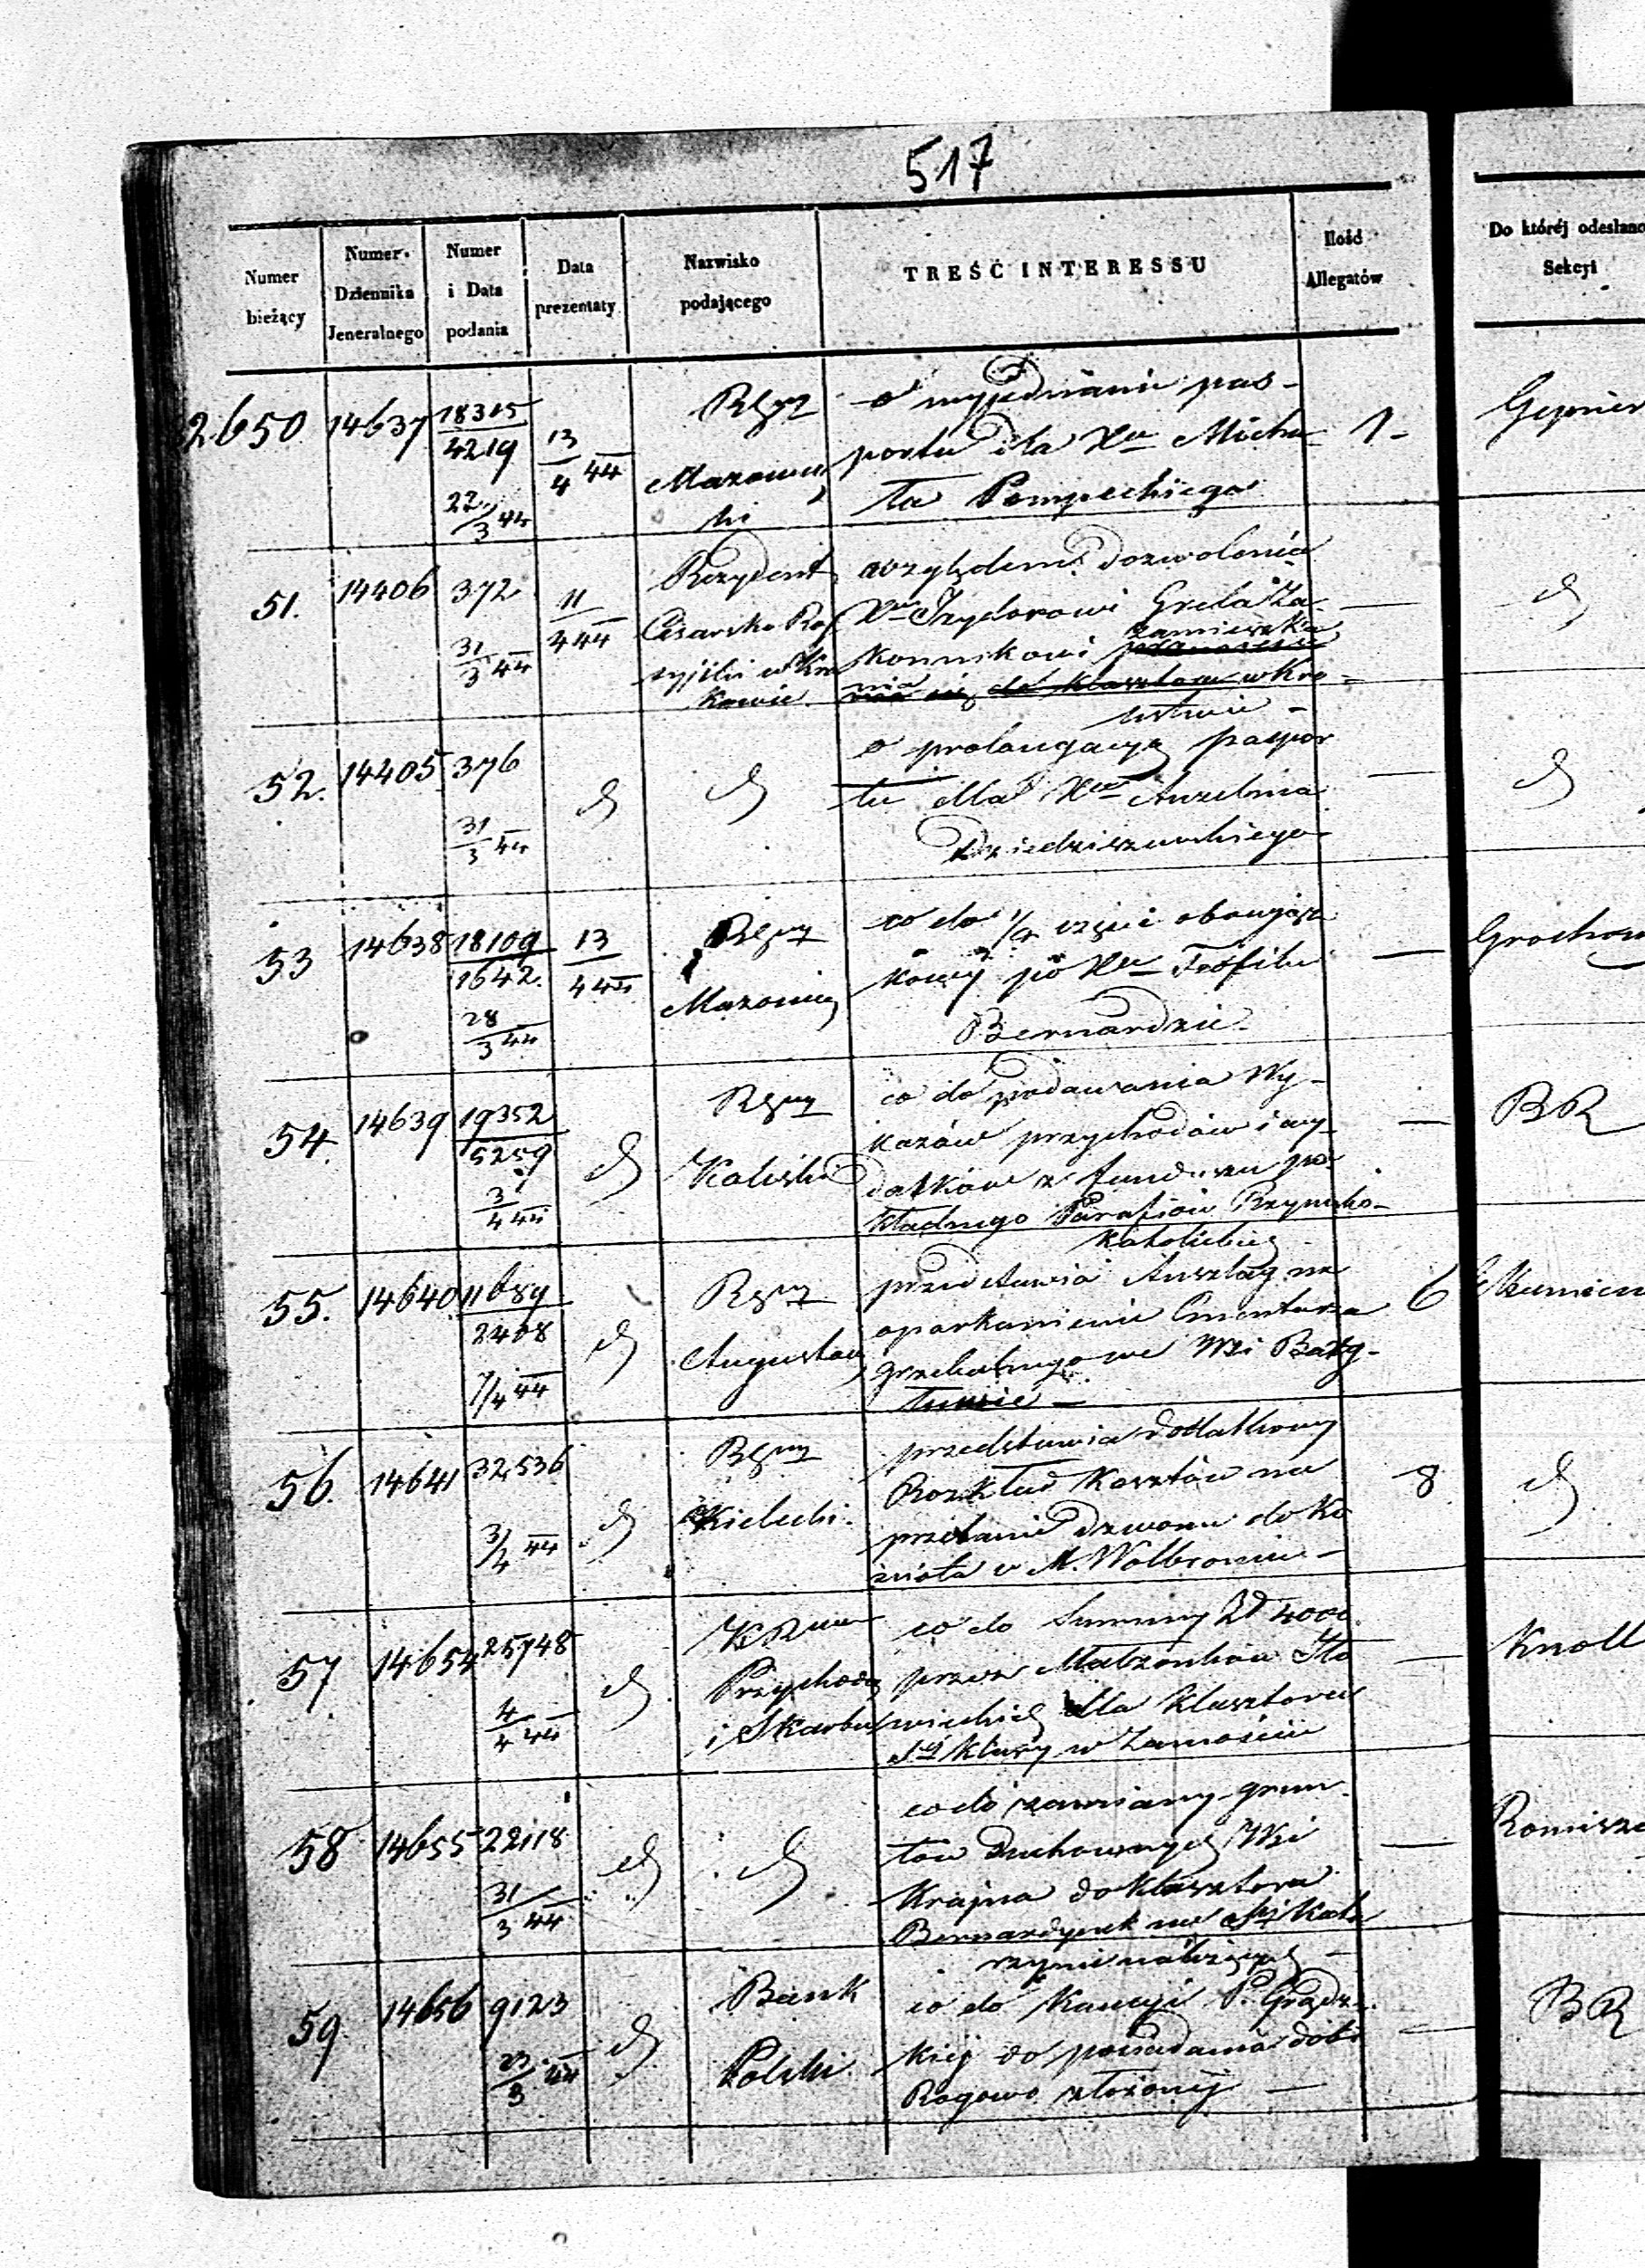 517
Numer bieżący
Numer Dziennika Jeneralnego
Numer i Data podania
Data prezentaty
Nazwisko podającego
TREŚĆ INTERESSU
Ilość Allegatów
Do której odesłano Sekcyi
2650 14637 18315 / 4219 22/3 44 13/4 44 Rgąz Mazowiec ki
o wyjednanie pas-
portu dla Xa Micha
ła Pempechiego
1-
51. 14406 372 31/3 44 11/4 44 Rezydent Cesarsko Ros syjski w Kra kowie
względem dozwolenia
Xu Izydorowi Grela Za-
konnikowi zamieszka
nia w Kra-
kowie -
52. 14405 376 31/3 44
o prolongacyą paszpor
tu dla Xa Anzelma
53 14638 18109 / 1642. 28/3 44 13/4 44 Mazowiec
co do 1/4 części
po Xu Teofilu
Bernardzie -
54. 14639 19352 / 5259 3/4 44 Kaliski
co do podawania Wy-
kazów przychodów i wy-
datków z funduszu po
kładnego Parafiów Rzymsko-
katolickich
BR
55. 14640 11689 / 2408 7/4 44 Augustow
przedstawia Anszlag na
oparkanienie Cmentarza
grzebalnego we Wsi
6
56. 14641 32536 3/4 44 Kielecki.
przedstawia dodatkowy
Rozkład Kosztów na
przelanie dzwonu do Ko
ścioła w M. Wolbromiu -
8
57 14654 25748 4/4 44 Przychodów i Skarbu
co do Summy Zł 4000
przez Małżonków
dla Klasztoru
Sej Klary w Zamościu
Knoll
58 14655 22118 31/3 44
co do zamiany grun
tów Duchownych Wsi
Krajna do Klasztoru
Bernardynek na Sej Kata
rzynie należących -
59 14656 9123 23/3 44 Bank Polski
co do Kaucyi P.
kiej do posiadania dóbr
Rogowo złożonej -
BR